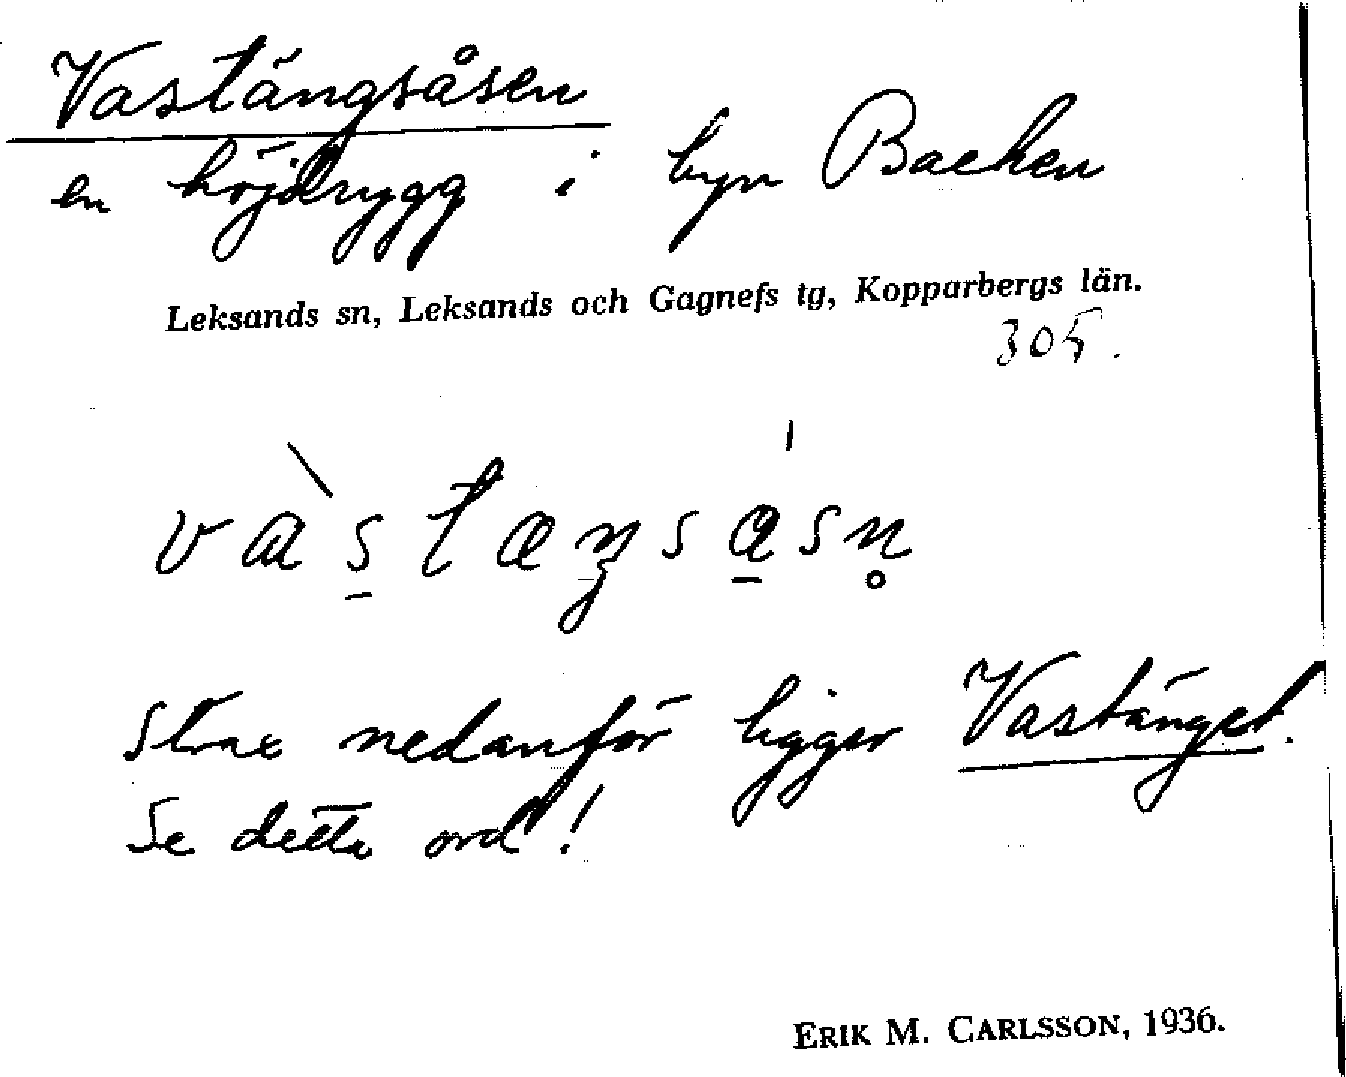 Vastängsåsen
en höjdrygg i byn Backen
Leksands sn, Leksands och Gagnefs tg, Kopparbergs län.
305.
vàs̠tæŋsa̠̍sn̥
Strax nedanför ligger Vastänget.
Se detta ord!
ERIK M. CARLSSON, 1936.